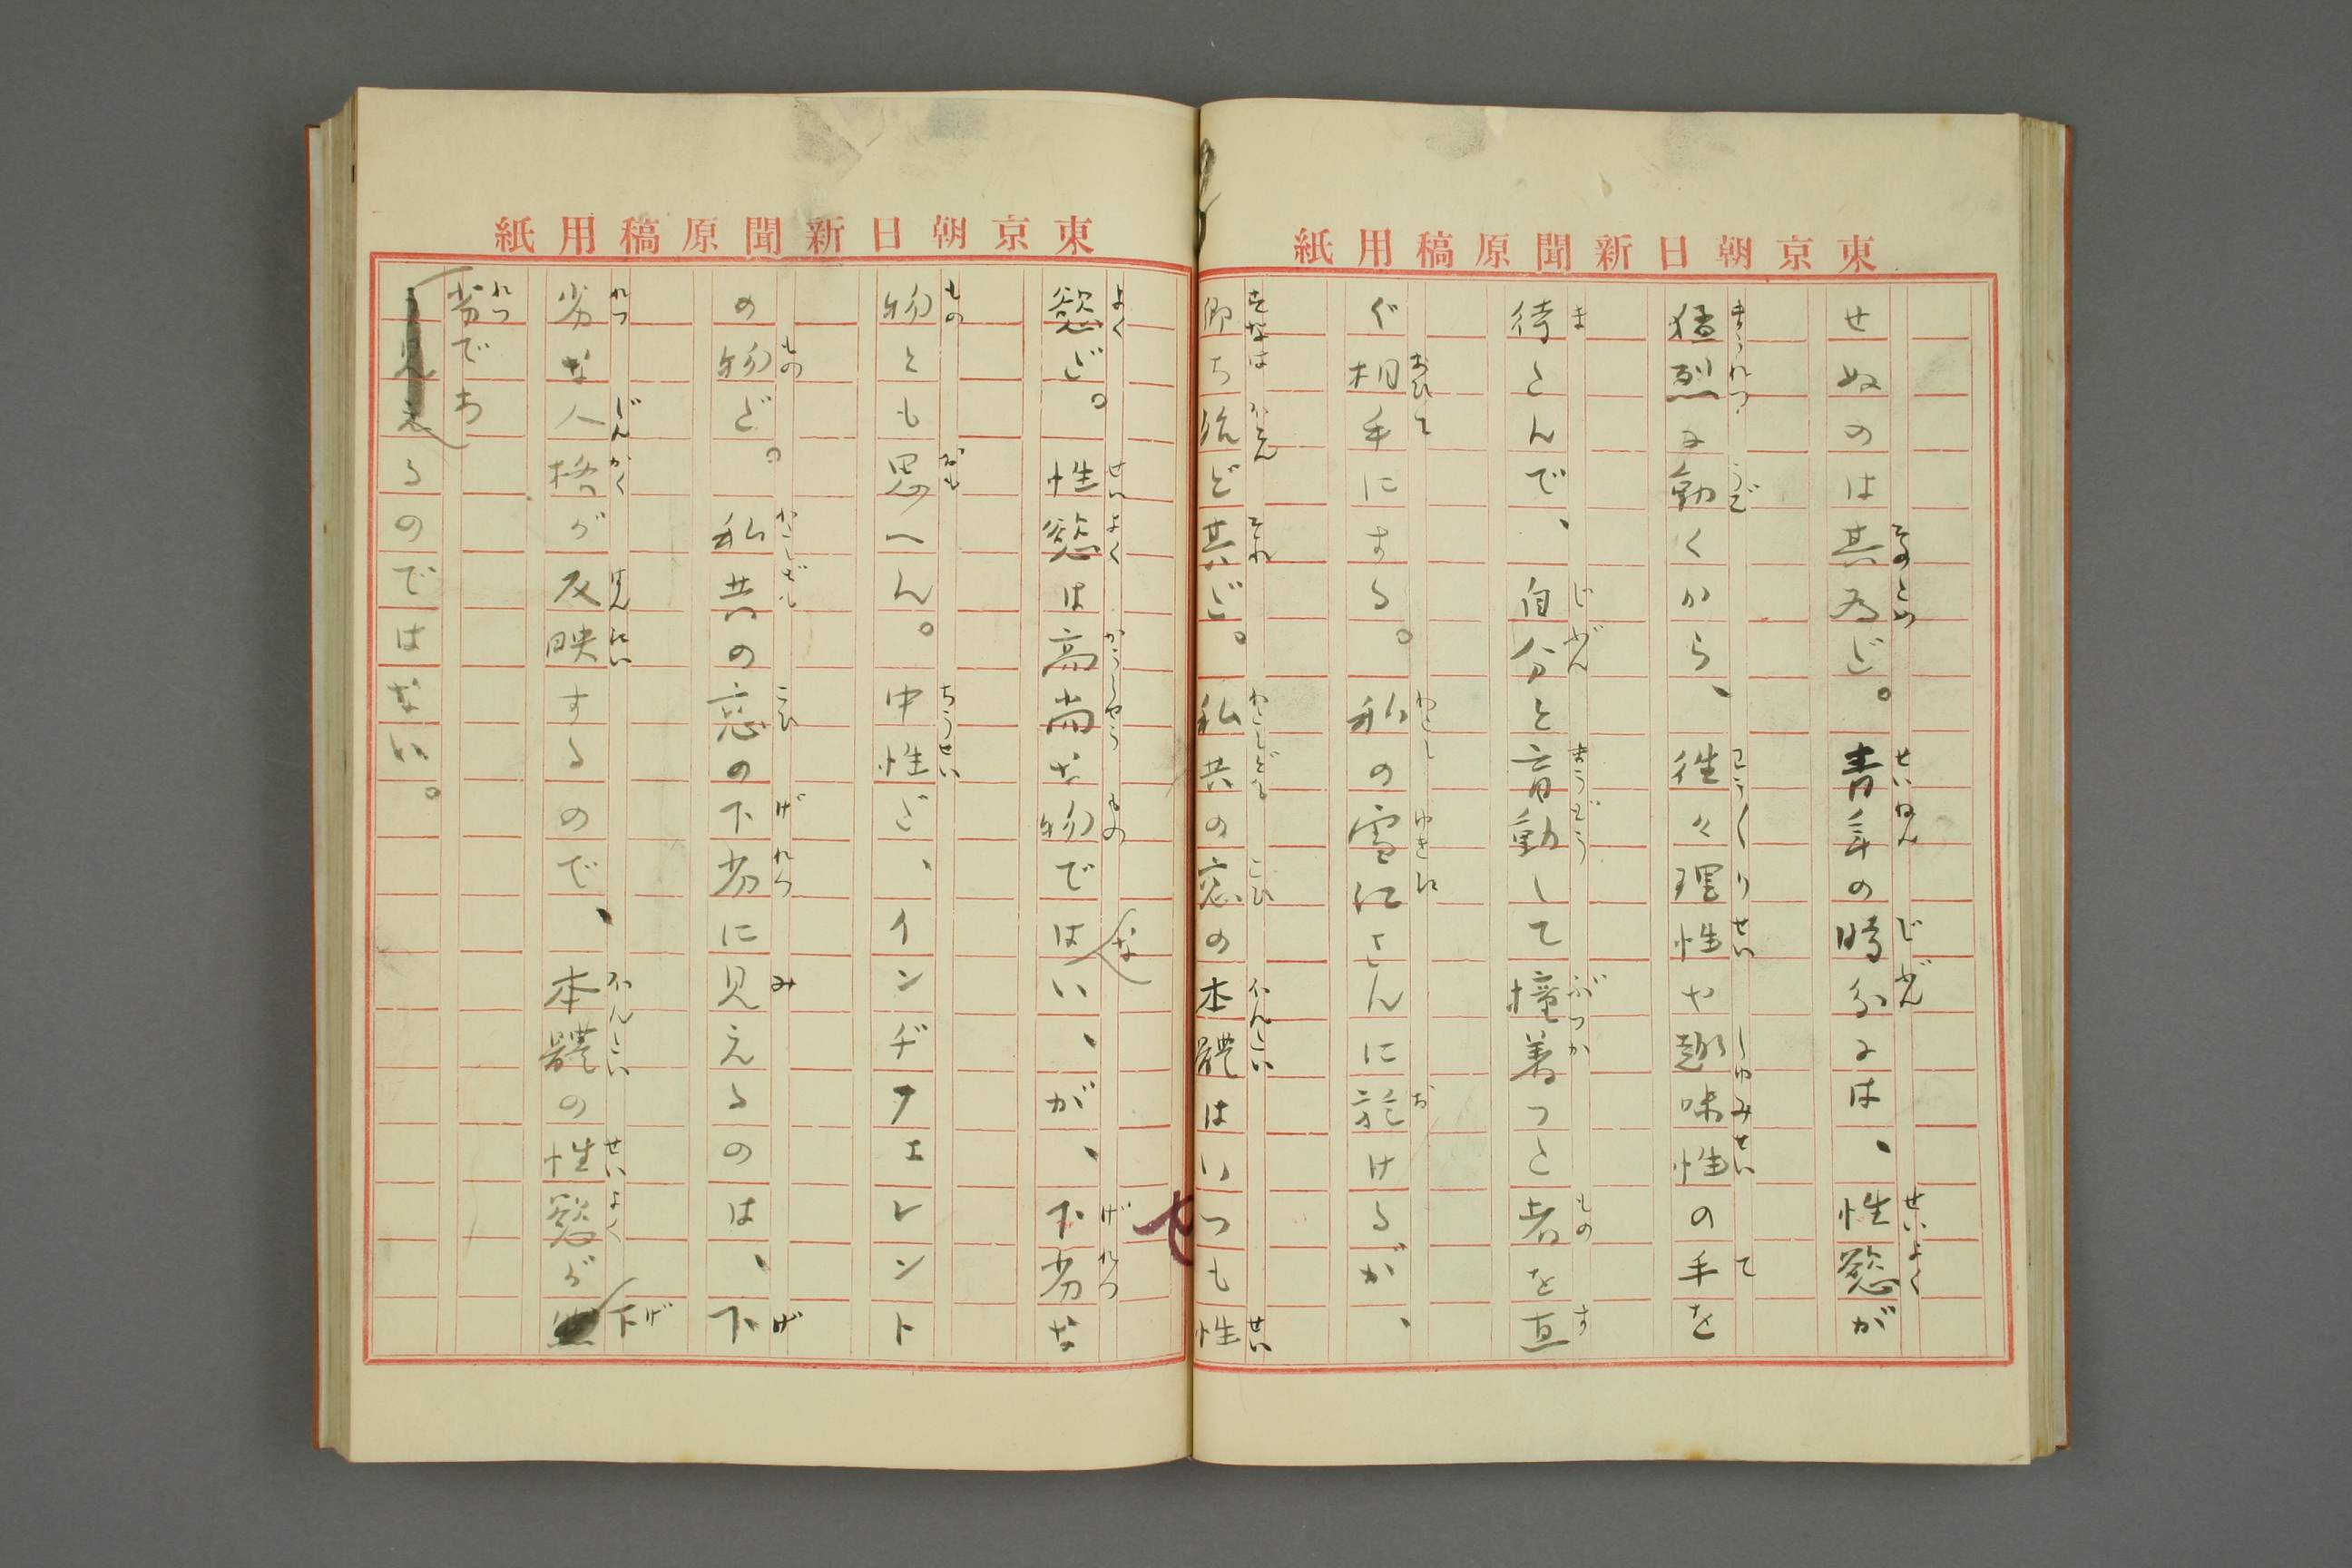 東京朝日新聞原稿用紙
せぬのは其為だ。青年の時分には、性慾が
猛烈に動くから、往々理性や趣味性の手を
待たんで、自分と盲動して撞着つた者を直
ぐ相手にする。私の雪江さんに於けるが、
即ち殆ど其だ。私共の恋の本體はいつも性
東京朝日新聞原稿用紙
慾だ。性慾は高尚な物ではない、が、下劣な
物とも思へん。中性だ、インヂフェレント
の物だ。私共の恋の下劣に見えるのは、下
劣な人格が反映するので、本體の性慾が下
劣であ
るのではない。